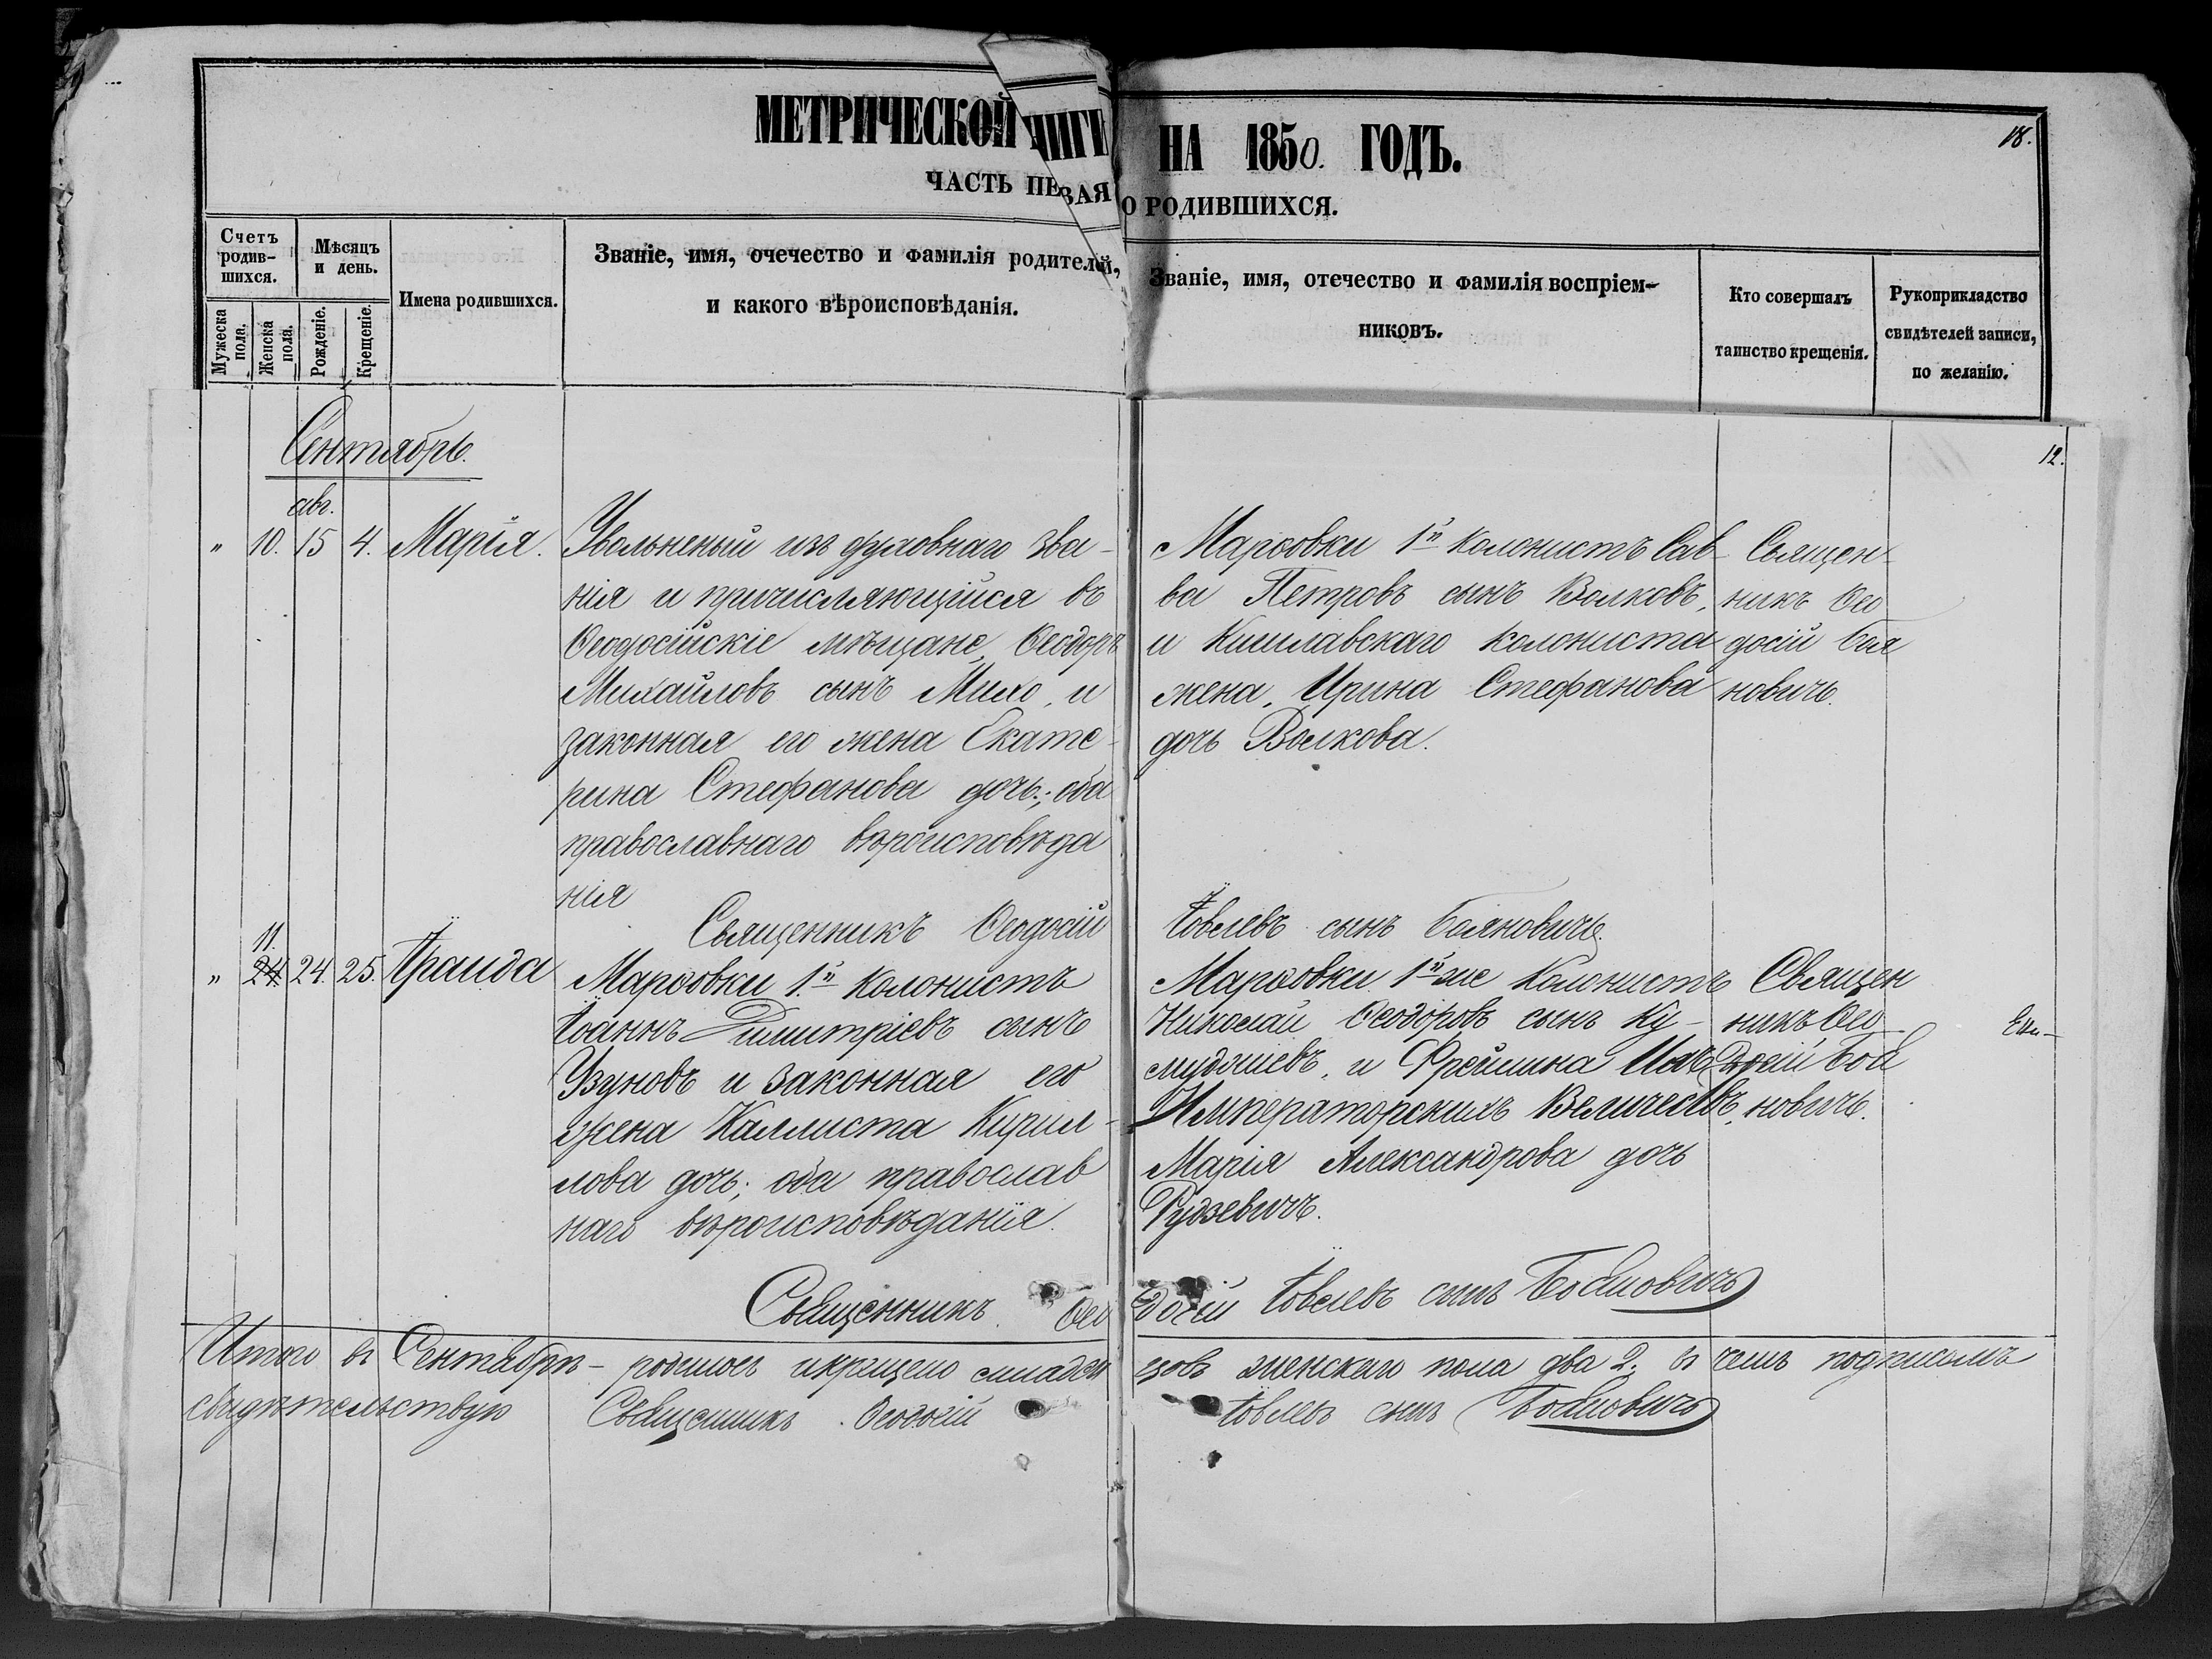 МЕТРИЧЕСКОЙ НИГИ НА 1850. ГОДЪ.
18.
ЧАСТЬ ПЕ ВАЯ О РОДИВШИХСЯ.
Счетъ родив-
шихся.
Мужеска пола.
Женска пола.
Мѣсяцъ
и день.
Рожденіе.
Крещеніе.
Имена родившихся.
Званіе, имя, очечество и фамилія родителей,
и какого вѣроисповѣданія.
Званіе, имя, отечество и фамилія воспріем-
никовъ.
Кто совершалъ
таинство крещенія.
Рукоприкладство
свидѣтелей записи,
по желанію.
12.
Сентябрь.
авг.
" 10. 15 4. Марія.
Увольненый изъ духовнаго зва-
нія и причисляющійся въ
Ѳеодосійскіе мѣщане, Ѳеодоръ
Михайловъ сынъ Михо, и
законная его жена Екате-
рина Стефанова дочь; оба
православнаго вѣроисповѣда
нія
Марѳовки 1й колонистъ Сав-
ва Петровъ сынъ Волковъ,
и Кишлавскаго колониста
жена, Ирина Стефанова
дочь Волкова.
Священ-
никъ Ѳео
досій Боя
новичъ.
Священникъ Ѳеодосій Іовлевъ сынъ Бояновичъ.
11.
" 24 24. 25. Ираида
Марѳовки 1й колонистъ
Іоаннъ Димитріевъ сынъ
Узуновъ и законная его
жена Каллиста Кирил-
лова дочь; оба православ
наго вѣроисповѣданія.
Марѳовки 1й же колонистъ
Николай Ѳеодоровъ сынъ Ку-
муджіевъ, и Фрейлина Ихъ
Императорскихъ Величествъ,
Марія Александрова дочь
Рудзевичъ.
Священ
никъ Ѳео-
досій Боя
новичъ.
Священникъ Ѳеодосій Іовлевъ сынъ Бояновичъ
Итого въ Сентябрѣ- родилось и крещено младенцовъ женскаго пола два 2. въ чемъ подписомъ
свидѣтельствую Священникъ Ѳеодосій Іовлевъ сынъ Бояновичъ